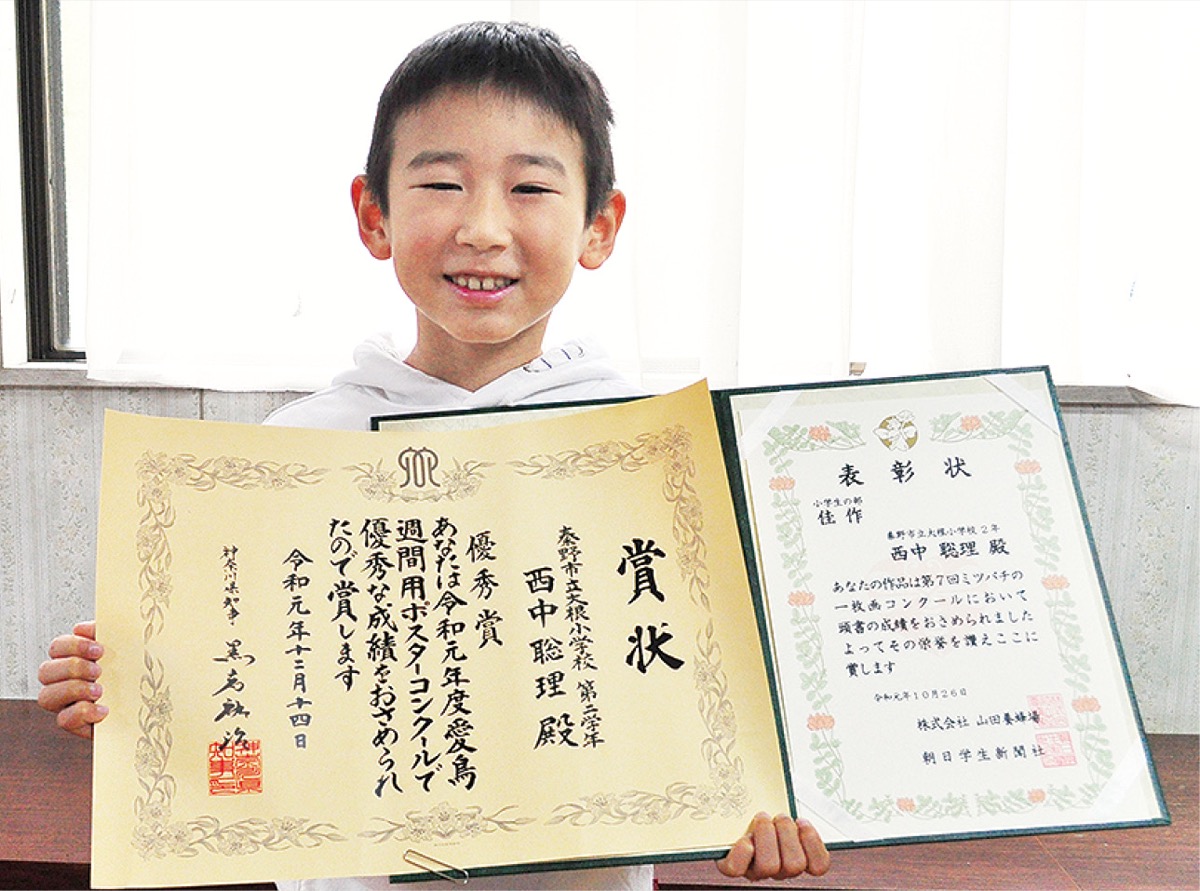 賞状
秦野市立大根小学校 第二学年
西中聡理 殿
優秀賞
あなたは令和元年度愛鳥
週間用ポスターコンクールで
優秀な成績をおさめられ
たので賞します
令和元年十二月十四日
神奈川県知事 黒岩祐治
表彰状
小学生の部
佳作
秦野市立大根小学校2年
西中 聡理 殿
あなたの作品は第7回ミツバチの
一枚画コンクールにおいて
頭書の成績をおさめられました
よってその栄誉を讃えここに
賞します
令和元年10月26日
株式会社 山田養蜂場
朝日学生新聞社